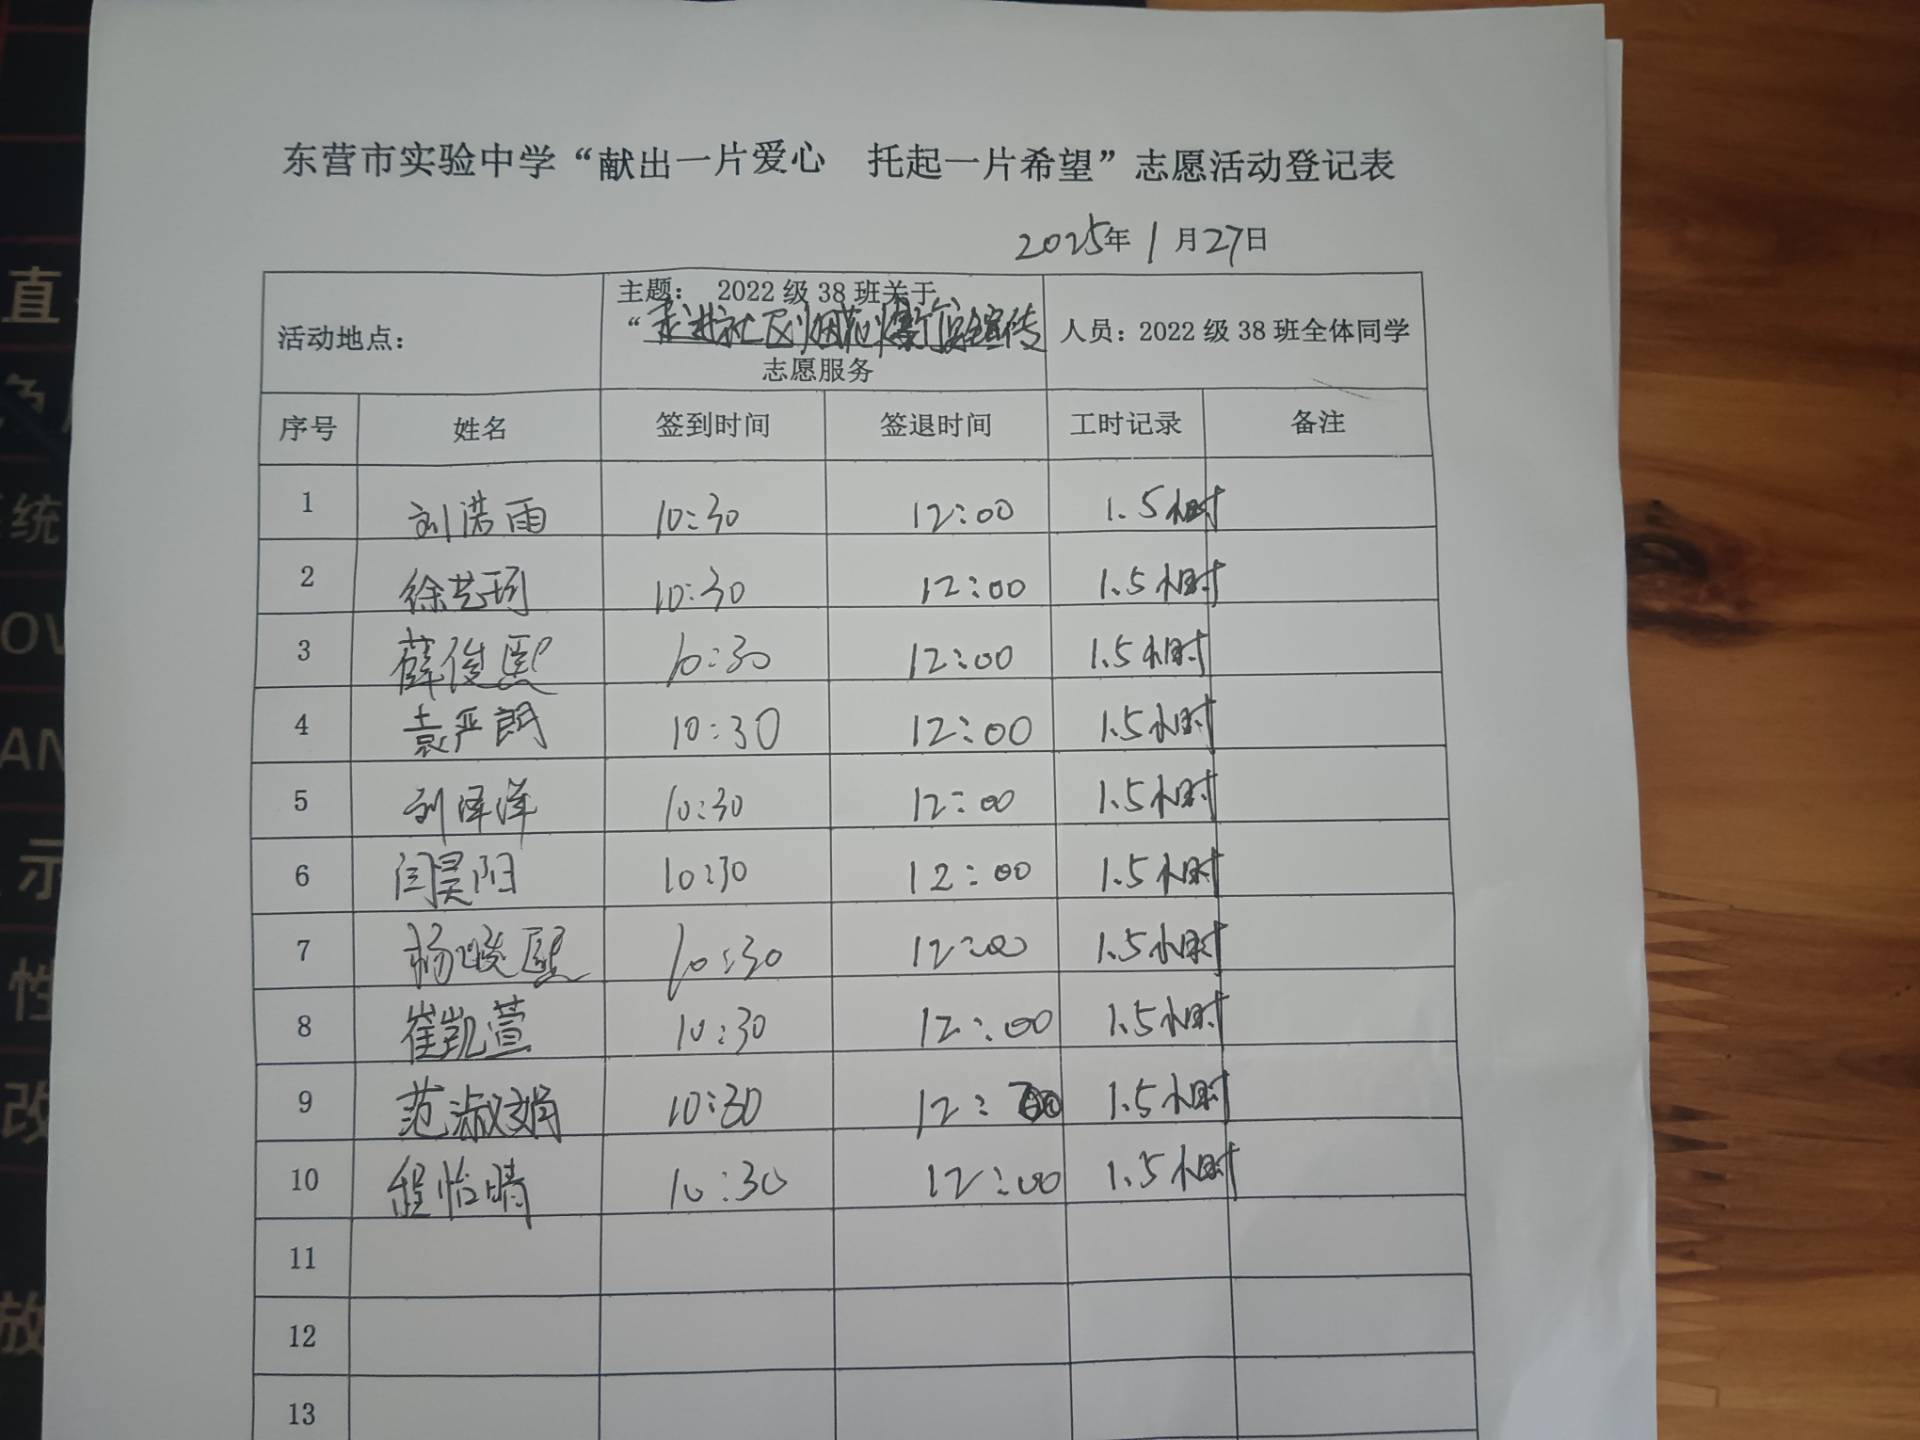 东营市实验中学“献出一片爱心 托起一片希望”志愿活动登记表
2025年1月27日
活动地点： 主题： 2022 级 38 班关于 “走进社区烟花爆竹安全宣传 志愿服务 人员：2022 级 38 班全体同学
序号 姓名 签到时间 签退时间 工时记录 备注
1 刘洪雨 10:30 12:00 1.5小时
2 徐艺珂 10:30 12:00 1.5小时
3 薛俊熙 10:30 12:00 1.5小时
4 袁严朗 10:30 12:00 1.5小时
5 刘泽洋 10:30 12:00 1.5小时
6 闫昊阳 10:30 12:00 1.5小时
7 杨峻熙 10:30 12:00 1.5小时
8 崔凯萱 10:30 12:00 1.5小时
9 范淑娟 10:30 12:00 1.5小时
10 程怡晴 10:30 12:00 1.5小时
11
12
13
直
统
OV
AN
示
性
改
放